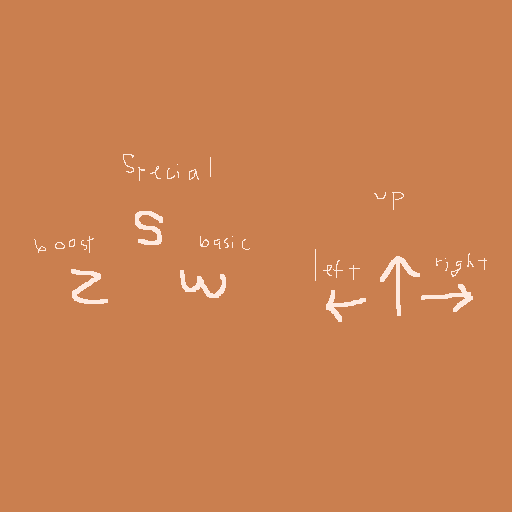 Special
S
boost
basic
Z
W
up
left
right